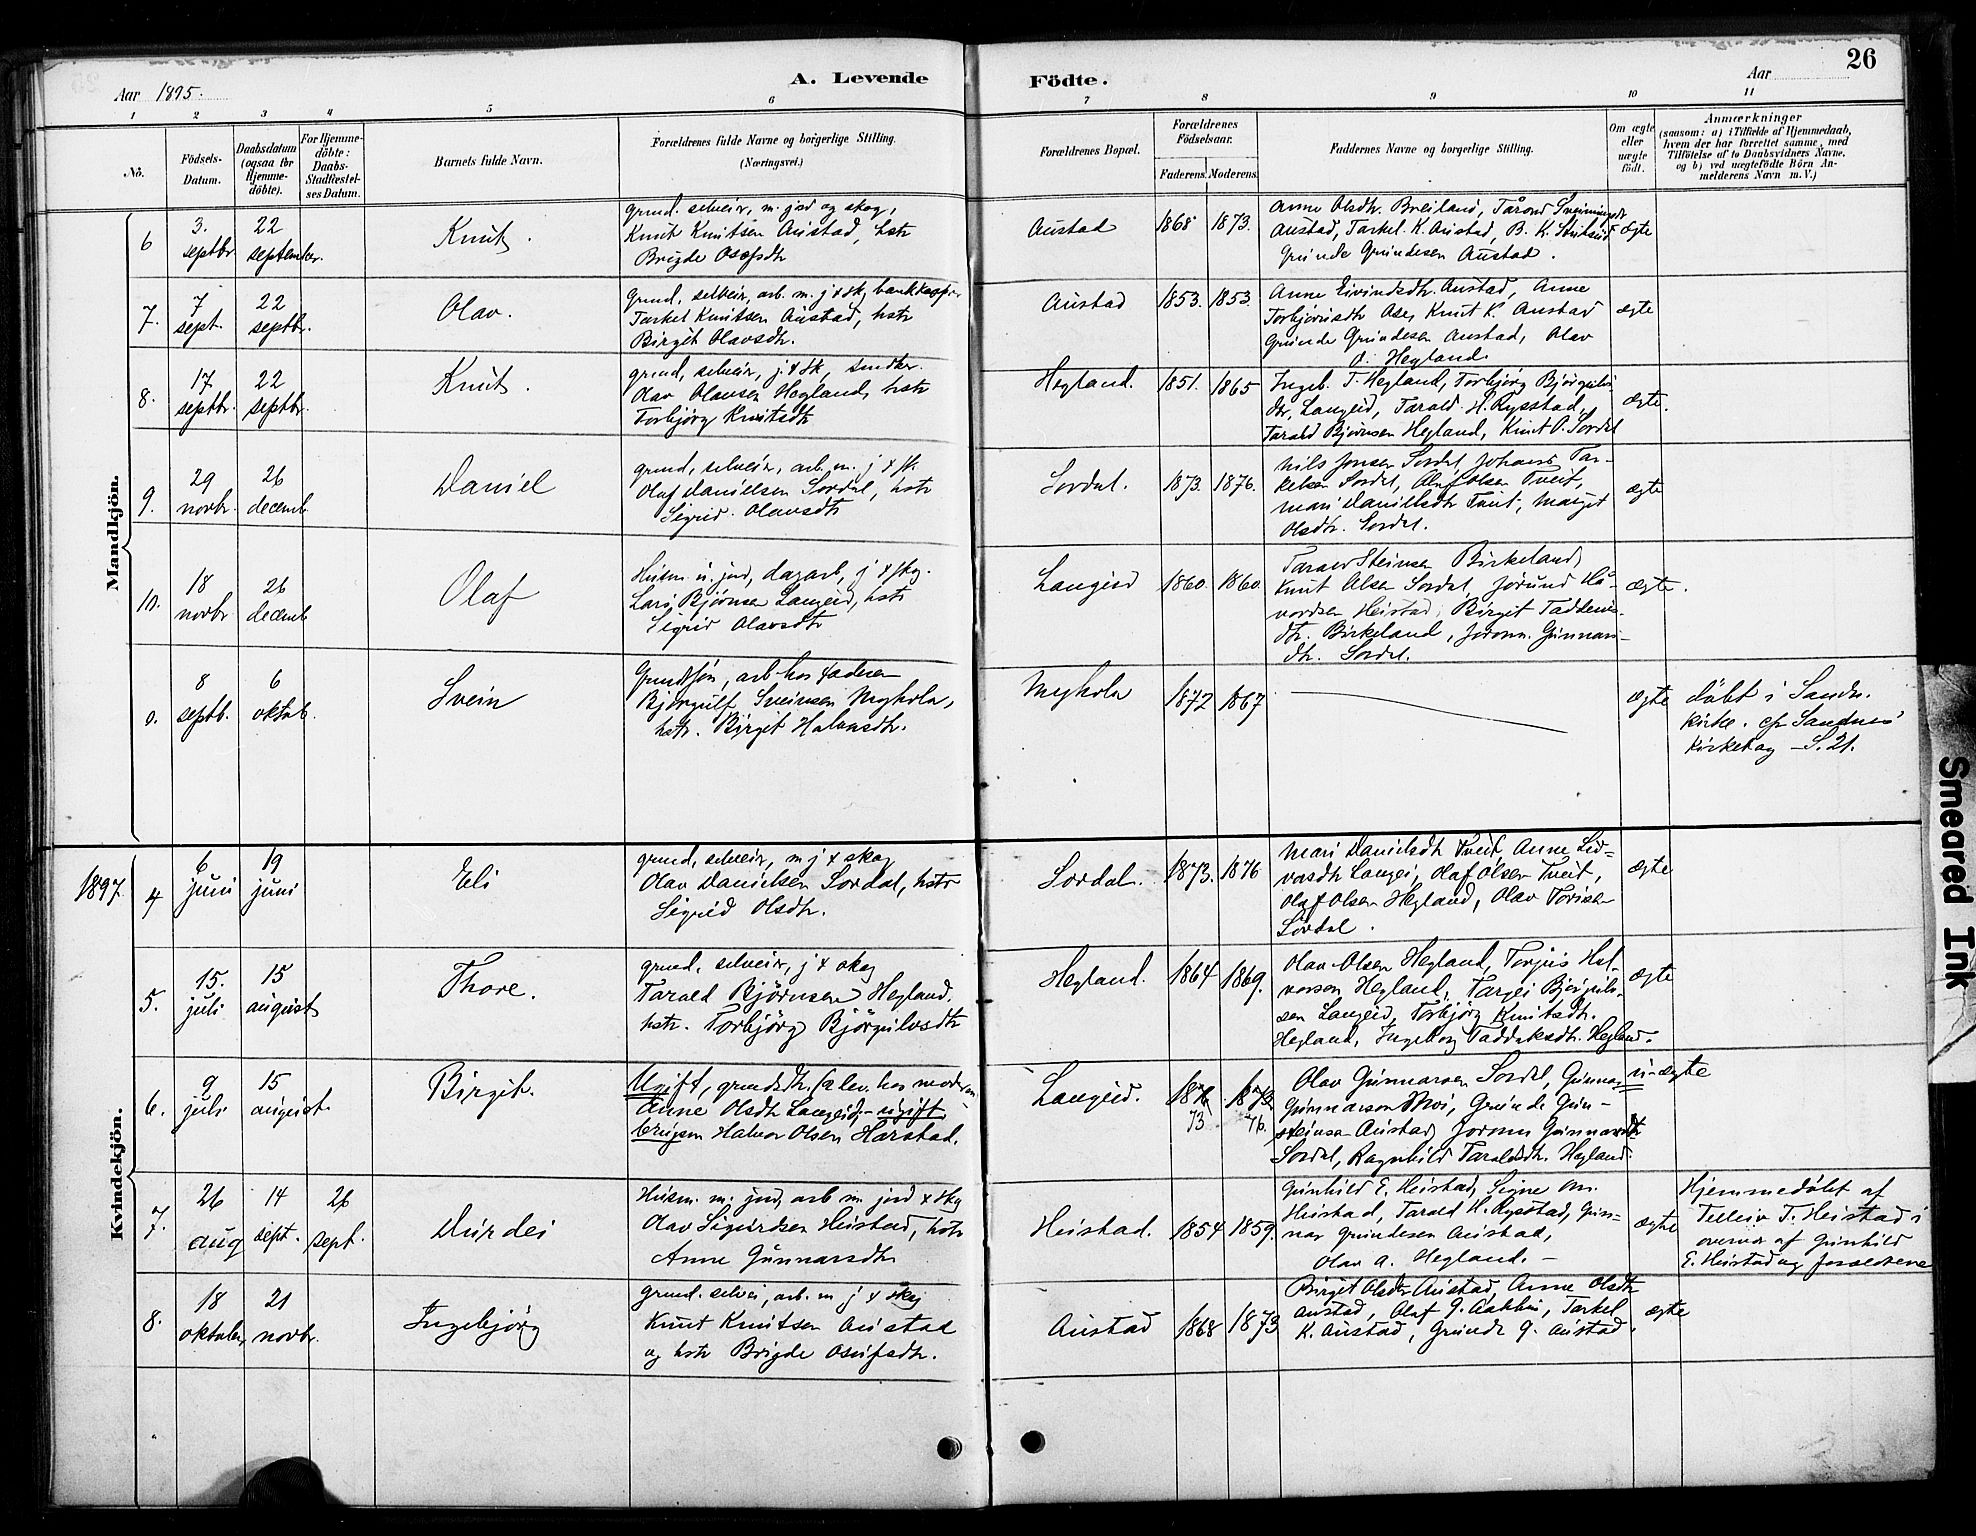 26
A. Levende
Födte.
Aar 1895.
Aar
1 2 3 4 5 6 7 8 9 10 11
No.
Födsels-
Datum.
Daabsdatum
(ogsaa for
Hjemme-
döbte).
For Hjemme-
döbte:
Daabs-
Stadfæstel-
ses Datum.
Barnets fulde Navn.
Forældrenes fulde Navne og borgerlige Stilling.
(Næringsvei.)
Forældrenes Bopæl.
Forældrenes
Födselsaar.
Faderens. Moderens.
Faddernes Navne og borgerlige Stilling.
Om ægte
eller
uægte
födt.
Anmærkninger
(saasom: a) i Tilfælde af Hjemmedaab,
hvem der har forrettet samme, med
Tilföielse af to Daabsvidners Navne,
og b) ved uægtefödte Börn An-
melderens Navn m. V.)
Mandkjön.
6
3.
septbr.
22
september.
Knut.
grund. selveier, m. jord og skog,
Knut Knutsen Austad, hstr
Brigde Osefsdtr
Austad
1868 1873.
Anne Olsdtr. Breiland, Tarald
Austad, Tarkel K. Austad, B. K.
Grunde Grundesen Austad.
ægte
7.
7
sept.
22
septbr.
Olav.
Grund, selveier, arb. m. j & sk,
Tarkel Knutsen Austad, hstr
Birgit Olavsdtr.
Austad
1853. 1853.
Anne Eivindsdtr. Austad, Anne
Torbjørnsdtr Ose, Knut K. Austad
Grunde Grundesen Austad, Olav
O. Hegland.
ægte
8.
17
septbr.
22
septbr.
Knut.
grund, selveier, j. & sk,
Olav Olavsen Hegland, hstr
Torbjörg Knutsdtr
Hegland.
1851. 1865
Ingeb. T. Hegland, Torbjörg Bjørgulvs-
dtr, Langeid, Tarald H. Rysstad,
Tarald Bjørnsen Hegland, Knut O. Sordal
ægte.
9.
29
novbr.
26
decemb.
Daniel
grund, selveier, arb. m. j & sk
Olaf Danielsen Sordal, hstr
Sigrid Olavsdtr
Sordal.
1873. 1876.
Nils Jonsen Sordal, Johans Tar-
kelsen Sordal, Olaf Olsen Tveit,
Mari Danielsdtr Tveit, Marget
Olsdtr. Sordal.
ægte
10.
18
novbr
26
decemb
Olaf
Husm. u. jord, dagarb, j & skog.
Lars Bjørnsen Langeid, hstr
Sigrid Olavsdtr
Langeid
1860. 1860.
Tarald Steinsen Birkeland,
Knut Olsen Sordal, Jorund Hå-
vordsen Heistad, Birgit Taddeus-
dtr. Birkeland, Joronn. Gunnars-
dtr. Sordal.
ægte.
0.
8
septb.
6
oktob.
Svein
Grundsøn, arb hos faderen
Bjørgulf Sveinsen Myhola,
hstr. Birgit Halvorsdtr.
Myhola
1872 1867
ægte
døbt i Sandn.
kirke. cfr Sandnes
Kirkebog - S. 21.
Kvindekjön.
1897.
4
6
juni
19
juni
Eli
grund, selveier, m j & skog
Olav Danielsen Sordal, hstr
Sigrid Olsdtr.
Sordal.
1873. 1876
Mari Danielsdtr Tveit, Anne Sid-
vasdtr Langei, Olaf Olsen Tveit,
Olaf Olsen Hegland, Olav Torisen
Sordal.
ægte
5.
15.
juli
15
august
Thore.
grund, selveier, j & skog
Tarald Bjørnsen Hegland,
hstr. Torbjörg Björgulvsdtr
Hegland.
1864 1869.
Olav Olsen Hegland, Torjus Hal-
vorson Hegland, Targei Bjørgulv-
sen Langeid, Torbjörg Knutsdtr.
Hegland, Ingeborg Taddeusdtr. Hegland.
ægte
6.
9
juli
15
august.
Birgit.
Ugift, grundsdtr. lev. hos moderen
Anne Olsdtr Langeid - ugift
Halvor Olsen Harstad.
Langeid.
1876 1873
73. 76.
Olav Gunnarsen Sordal, Gunnar
Gunnarson Moi, Grunde Gun-
steinsen Austad, Joronn Gunnarsdtr
Sordal, Ragnhild Taraldsdtr. Hegland.
u-ægte
7.
26
aug
14
sept.
26
sept.
Durdei
Husm. m. jord, arb m. jord & skog
Olav Sigurdsen Heistad, hstr
Anne Gunnarsdtr
Heistad.
1854 1859.
Gunhild E. Heistad, Signe
Heistad, Tarald H. Rysstad, Gun-
nar Grundesen Austad,
Olav A. Hegland.
ægte
Hjemmedøbt af
Telleiv T. Heistad i
overvær af Gunhild
E. Heistad og forældrene
8.
18
oktober
21
novbr.
Ingebjörg
grund. selvei, arb. m j & skog
Knut Knutsen Austad
og hstr Brigde Osufsdtr.
Austad
1868 1873
Birget Olsdtr Austad, Anne Olsdtr
Austad, Olaf G. Aakhus, Tarkel
K. Austad, Grunde G. Austad.
ægte
Smeared Ink